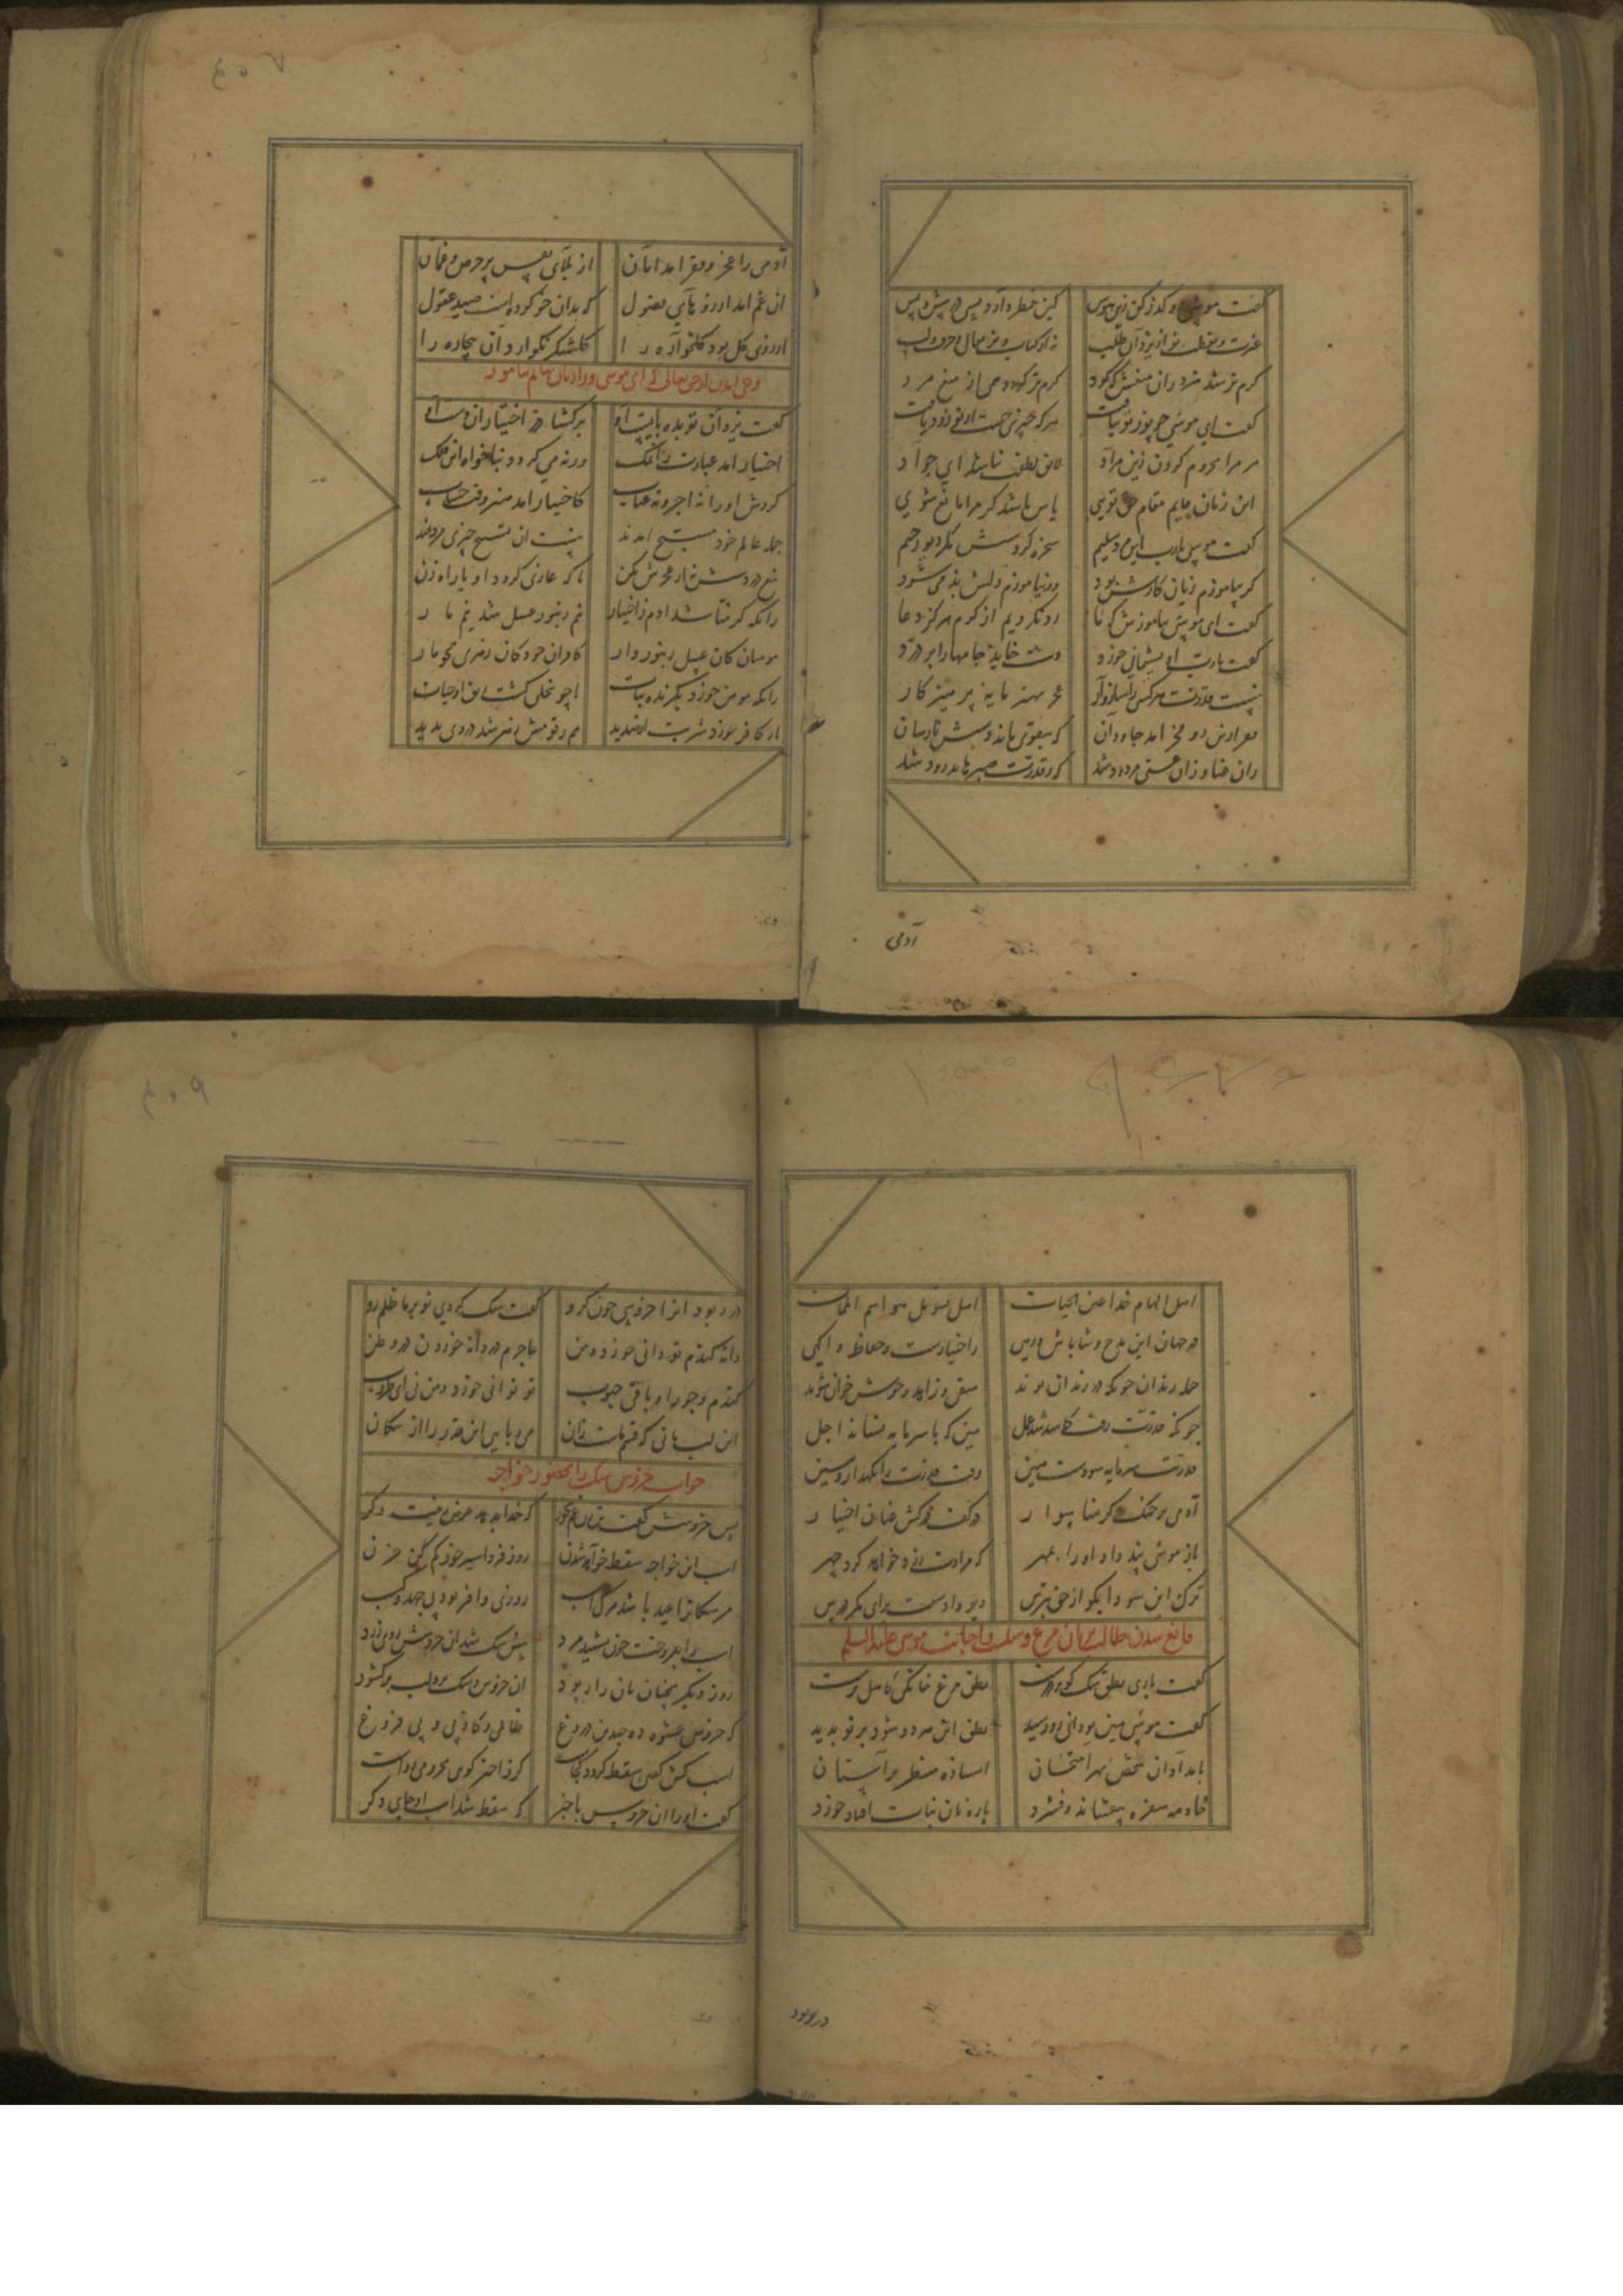 گفت موسی رو گذر کن زین هوس کین خطر دارد بسی در پیش و پس
عبرت و یقظت تو از یزدان طلب نه از کتاب و از مقال و حرف و لب
گرم تر شد مرد زان منعش که کرد گرم تر گردد همی از منع مرد
گفت ای موسی چو نور تو بتافت هر که چیزی جست از تو زود یافت
مر مرا محروم کردن زین مراد لایق لطفت نباشد ای جواد
این زمان قایم مقام حق تویی یاس باشد گر مرا مانع شوی
گفت موسی یارب این مرد سلیم سخره کردستش مگر دیو رجیم
گر بیاموزم زیان کارش بود ور نیاموزم دلش بد می شود
گفت ای موسی بیاموزش که ما رد نکردیم از کرم هرگز دعا
گفت یارب او پشیمانی خورد دست خاید جامها را بر درد
نیست قدرت هر کسی را سازوار عجز بهتر مایه پرهیزکار
فقر ازین رو فخر آمد جاودان که بتقوی ماند دستش نارسان
زان غنا و زان غنی مردود شد که ز قدرت صبرها بدرود شد
آدمی
آدمی را عجز و فقر آمد امان از بلای نفس پر حرص و غمان
آن غم آمد ز آرزوهای فضول که بدان خو کرده است صید عقول
آرزوی گل بود گلخواره را گلشکر نگوارد آن بیچاره را
وحی آمدن از حق تعالی که ای موسی او را زبان بهایم بیاموز
گفت یزدان تو بده بایست او برگشا در اختیار آن دست او
اختیار آمد عبادت را نمک ورنه می گردد بناخواه این فلک
گردش او را نه اجر و نه عقاب که اختیار آمد هنر وقت حساب
جمله عالم خود مسبح آمدند نیست آن تسبیح جبری مزدمند
تیغ در دستش نه از عجزش بکن تا که غازی گردد او یا راه زن
زانکه کرمنا شد آدم ز اختیار نیم زنبور عسل شد نیم مار
مومنان کان عسل زنبوروار کافران خود کان زهری همچو مار
زانکه مومن خورد بگزیده نبات تا چو نحلی گشت ریق او حیات
باز کافر خورد شربت از صدید هم ز قوتش زهر شد در وی پدید
اهل الهام خدا عین الحیات اهل تسویل هوا سم الممات
در جهان این مدح و شاباش و زهی ز اختیارست و حفاظ و آگهی
جمله رندان چونکه در زندان بوند متقی و زاهد و حق خوان شوند
چونکه قدرت رفت کاسد شد عمل هین که تا سرمایه نستاند اجل
قدرتت سرمایه سودست هین وقت قدرت را نگهدار و ببین
آدمی بر خنگ کرمنا سوار در کف درکش عنان اختیار
باز موسی پند داد او را بمهر که مرادت زرد خواهد کرد چهر
ترک این سودا بگو از حق بترس دیو دادست برای مکر درس
قانع شدن طالب بزبان مرغ و سگ و اجابت موسی علیه السلم
گفت باری نطق سگ کو بر درست نطق مرغ خانگی کامل پرست
گفت موسی هین تو دانی رو رسید نطق این هر دو شود بر تو پدید
بامدادان شخص بهر امتحان ایستاده منتظر بر آستان
خادمه سفره بیفشاند و فشرد پاره نان بیات افتاد خورد
در ربود
در ربود آنرا خروسی چون گرو گفت سگ کردی تو بر ما ظلم رو
دانه گندم تو دانی خورد و من عاجزم در دانه خوردن در وطن
گندم و جو را و باقی حبوب تو توانی خورد و من نی ای طروب
این لب نانی که قسم ماست نان می ربایی این قدر را از سگان
جواب خروس سگ را بحضور خواجه
پس خروسش گفت تن زن غم مخور که خدا بدهد عوض زینت دگر
اسب این خواجه سقط خواهد شدن روز فردا سیر خور کم کن حزن
مر سگانرا عید باشد مرگ اسب روزی وافر بود بی جهد و کسب
اسب را بفروخت چون بشنید مرد پیش سگ شد آن خروسش روی زرد
روز دیگر همچنان نان را ربود آن خروس و سگ برو لب برگشود
کای خروس عشوه ده چند این دروغ ظالمی و کاذبی و بی فروغ
اسب کش گفتی سقط گردد کجاست کور اخترگوی محرومی ز راست
گفت او را آن خروس با خبر که سقط شد اسب او جایی دگر